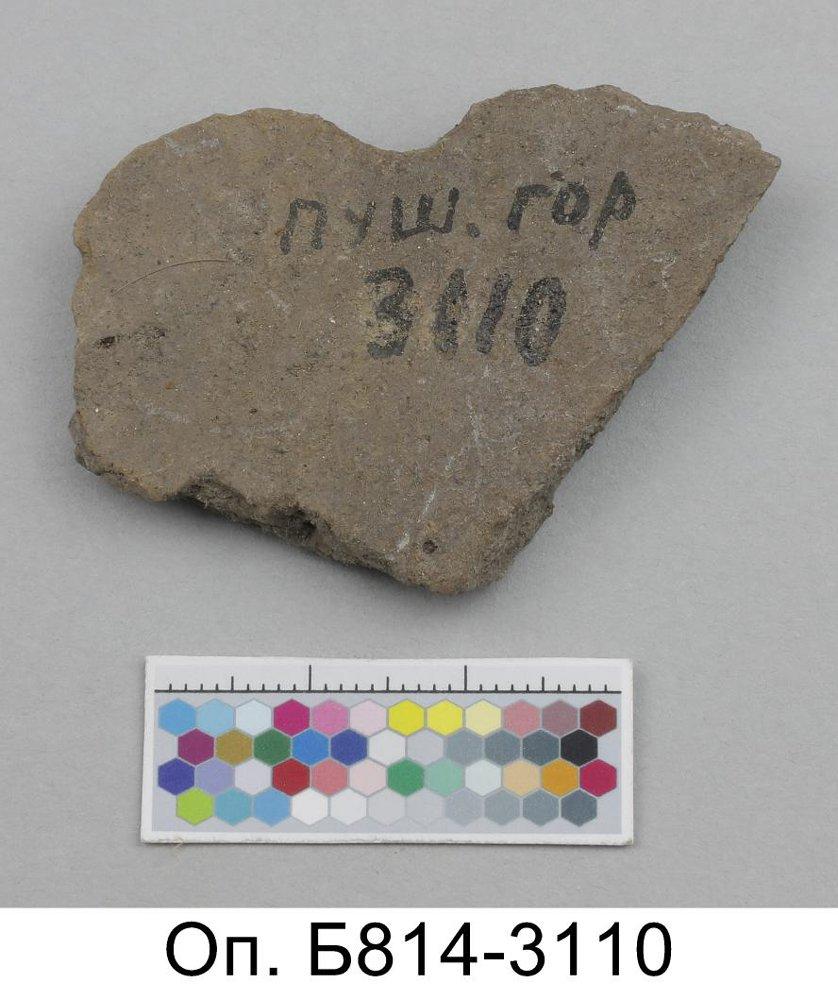 пуш. гор
3110
Оп. Б814-3110